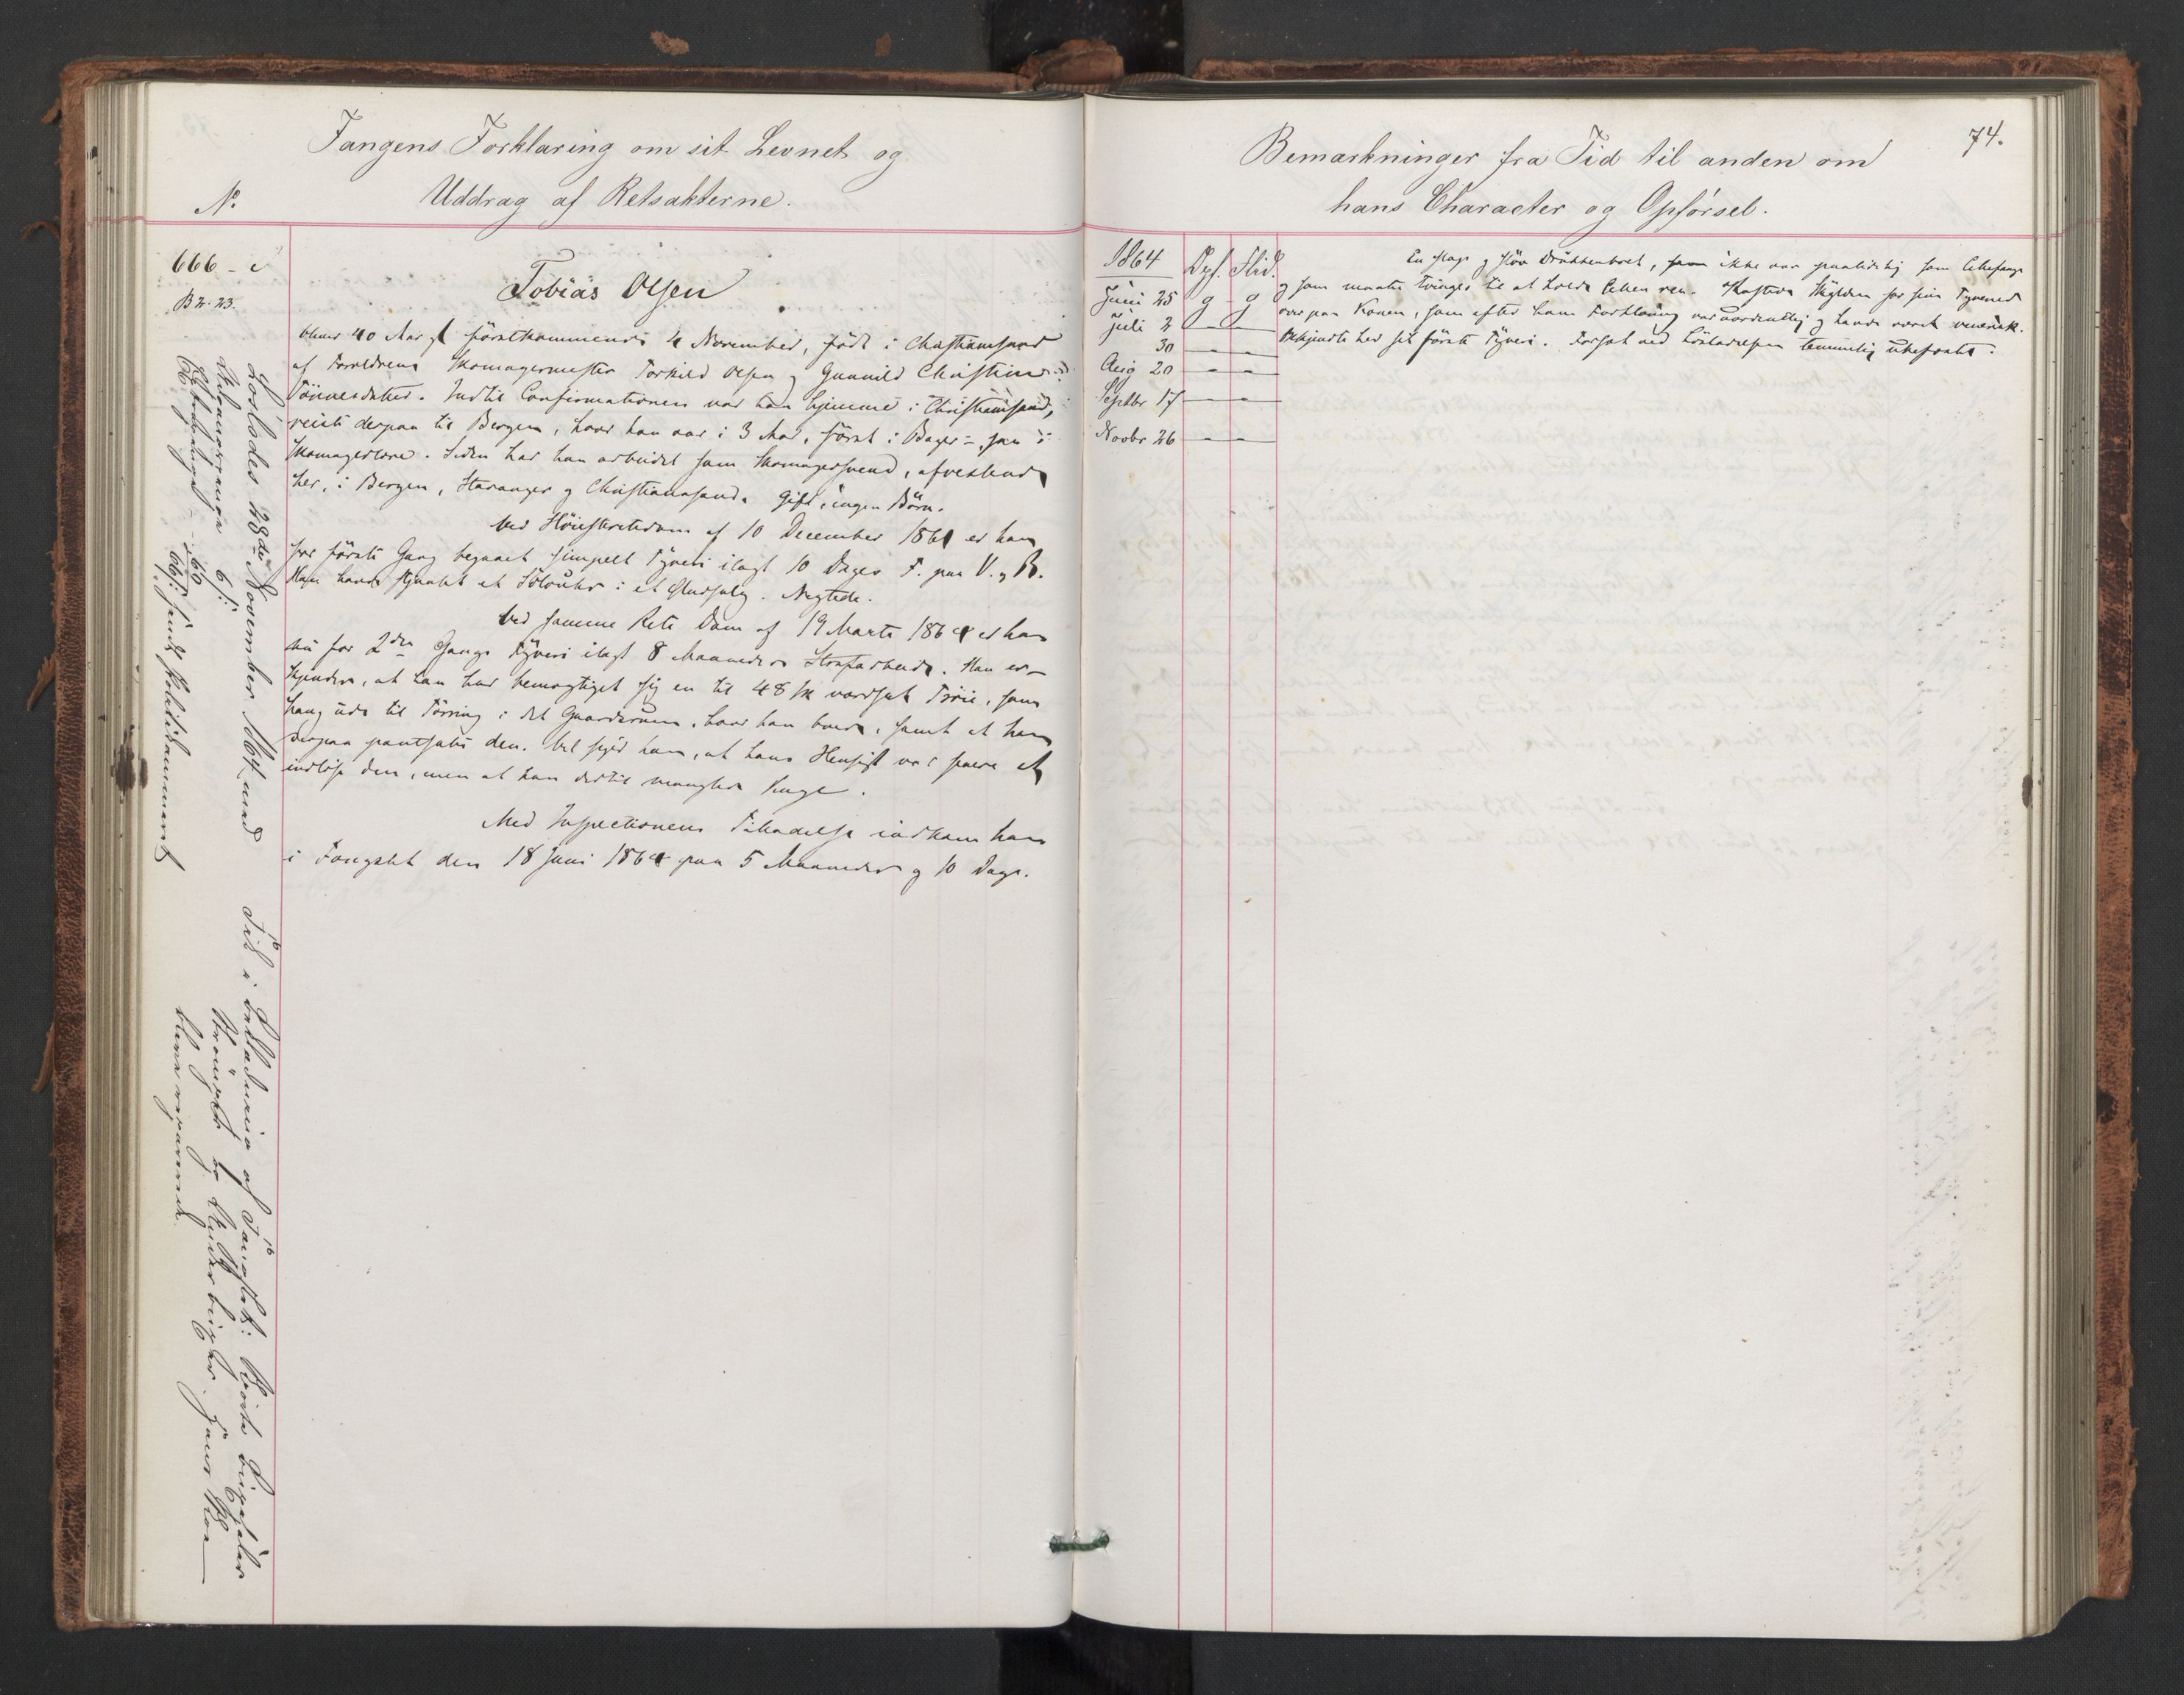 Fangens Forklaring om sit Levnet og
Uddrag af Retsakterne.
No.
666 - c
B 2. 23.
Tobias Olsen
bliver 40 Aar gl förstkommende 4 November, född i Christiansand
af Forældrene Skomagermester Torkild Olsen og Gunnild Christine
Tönnesdatter. Indtil Confirmationen var han hjemme i Christiansand,
reiste derpaa til Bergen, hvor han var i 3 Aar, först i Bager- saa i
Skomagerlære. Siden har han arbeidet som Skomagersvend, afvexlende
her, i Bergen, Stavanger og Christianssand. Gift, ingen Börn.
Ved Höiesteretsdom af 10 December 1861 er han
for förste Gang begaaet simpelt Tyveri ilagt 10 Dages F. paa V. & B.
Han havde stjaalet et Sölvuhr i et Udsalg. Negtede.
Ved samme Rets Dom af 19 Marts 1864 er han
nu for 2den Gangs Tyveri ilagt 8 Maaneders Strafarbeide. Han er-
kjender, at han har bemægtiget sig en til 48 sk vordsat Tröie, som
hang ude til Törring i det Gaardsrum, hvor han boede, samt at han
derpaa pantsatte den. Vel siger han, at hans Hensigt var senere at
indlöse den, men at han dertil manglede Penge.
Med Inspectionens Tilladelse indkom han
i Fængslet den 18 Juni 1864 paa 5 Maaneder og 10 Dage.
Löslades 28de November 1864 med
6 s:
- 60
66 s: sendt Politikammeret
Til i af Fængslet:
Bemærkninger fra Tid til anden om
hans Character og Opförsel.
74.
1864 Opf. Flid.
Juni 25 g g
Juli 2 - -
30 - -
Aug 20 - -
Septbr 17 - -
Novbr 26 - -
En slap og slöv Drukkenbolt, som ikke var paalidelig som Cellefange
og som maatte tvinges til at holde Cellen ren. Kastede Skylden for sine Tyverier
over paa Konen, som efter hans Forklaring var uordentlig og havde været venerisk.
Bekjendte her sit förste Tyveri. Forsat ved Lösladelsen temmelig ubefæstet.